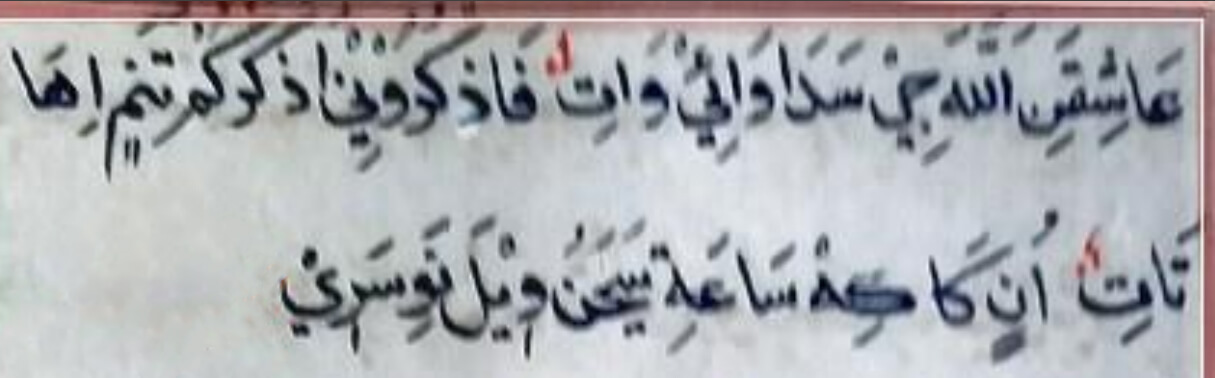 عَاشِقَنِ اللّٰهَ جِيْ سَدَا وَائِيْ وَاتِ فَاذْكُرُوْنِيْ اَذْكُرْكُمْ تَنِهٖ اِهَا
تَاتِ اُنِ كَا كِهْ سَاعَةِ سَيَحَنُ وِيْلَ نَوِسَرِيْ